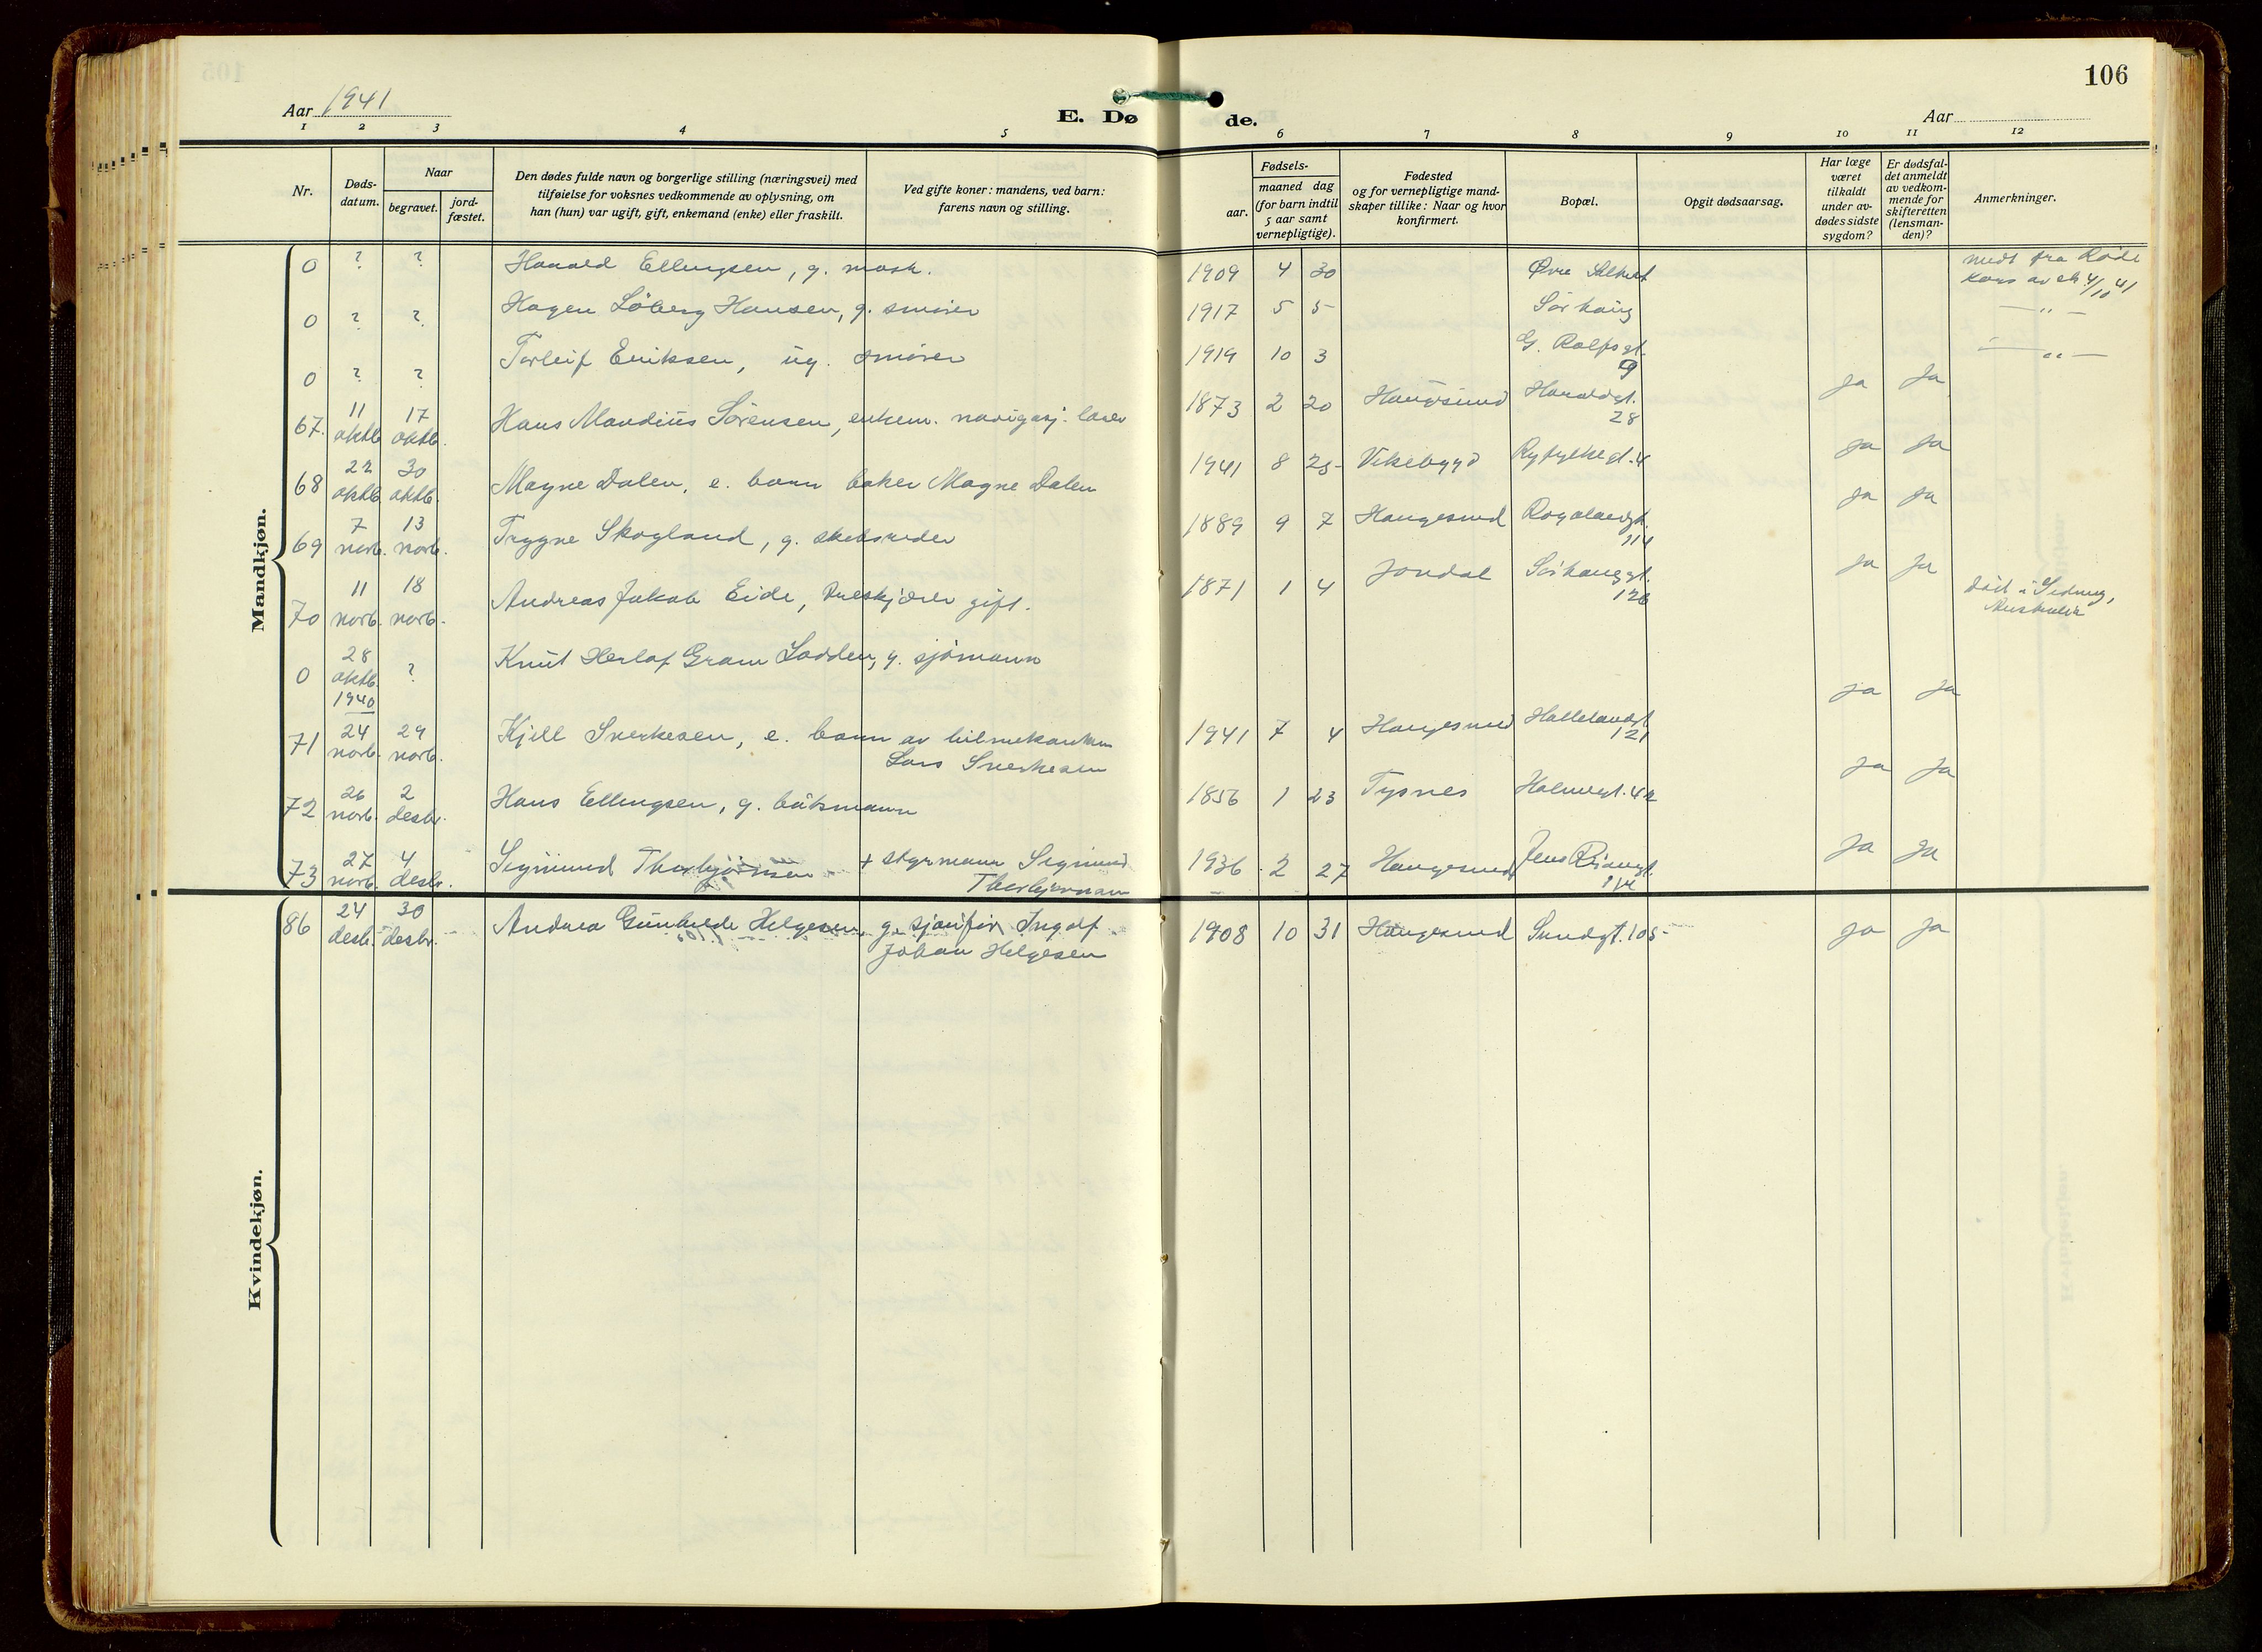 106
Aar 1941
E. Døde.
Aar
1 2 3 4 5 6 7 8 9 10 11 12
Nr.
Døds-
datum.
Naar
begravet.
jord-
fæstet.
Den dødes fulde navn og borgerlige stilling (næringsvei) med
tilføielse for voksnes vedkommende av oplysning, om
han (hun) var ugift, gift, enkemand (enke) eller fraskilt.
Ved gifte koner: mandens, ved barn:
farens navn og stilling.
Fødsels-
aar.
maaned dag
(for barn indtil
5 aar samt
vernepligtige).
Fødested
og for vernepligtige mand-
skaper tillike: Naar og hvor
konfirmert.
Bopæl.
Opgit dødsaarsag.
Har læge
været
tilkaldt
under av-
dødes sidste
sygdom?
Er dødsfal-
det anmeldt
av vedkom-
mende for
skifteretten
(lensman-
den)?
Anmerkninger.
Mandkjøn.
0 ? ? Harald Ellingsen, g. mask. 1909 4 30 Øvre
meds fra Røde
Kors av 4/10 41
0 ? ? Hagen Løberg Hansen, g. smører 1917 5 5 Sørhaug — " —
0 ? ? Torleif Eriksen, ug. smører 1919 10 3 G. Rolfsgt. 9 — " —
67. 11 oktb. 17 oktb. Hans Mandius Sørensen, enkem. navigasj. lærer 1873 2 20 Haugesund Haraldgt. 28 ja ja
68 22 oktb. 30 oktb. Magne Dalen, e. barn baker Magne Dalen 1941 8 25 Vikebygd Ryfylkegt. 4 ja ja
69 7 novb. 13 novb. Trygve Skogland, g. skibsreder 1889 9 7 Haugesund Rogalandgt. 114 ja ja
70 11 novb. 18 novb. Andreas Jakob Eide, gift. 1871 1 4 Jondal Sørhauggt. 126 ja ja
0 28 oktb. 1940 ? Knut Herlof Gram Lodden, g. sjømann
død i Sidney,
Australia
71 24 novb. 29 novb. Kjell Sverkesen, e. barn av bilmekaniker
Lars Sverkesen 1941 7 4 Haugesund 121 ja ja
72 26 novb. 2 desbr. Hans Ellingsen, g. båtsmann 1856 1 23 Tysnes Holmegt. 42 ja ja
73 27 novb. 4 desbr. Sigmund Thorbjørnsen + styrmann Sigmund
Thorbjørnsen 1936 2 27 Haugesund Jens Risøengt. 114 ja ja
Kvindekjøn.
86 24 desb. 30 desbr. Andrea Gunhilde Helgesen, g. sjåufør Ingolf
Johan Helgesen 1908 10 31 Haugesund Sundgt. 105 ja ja